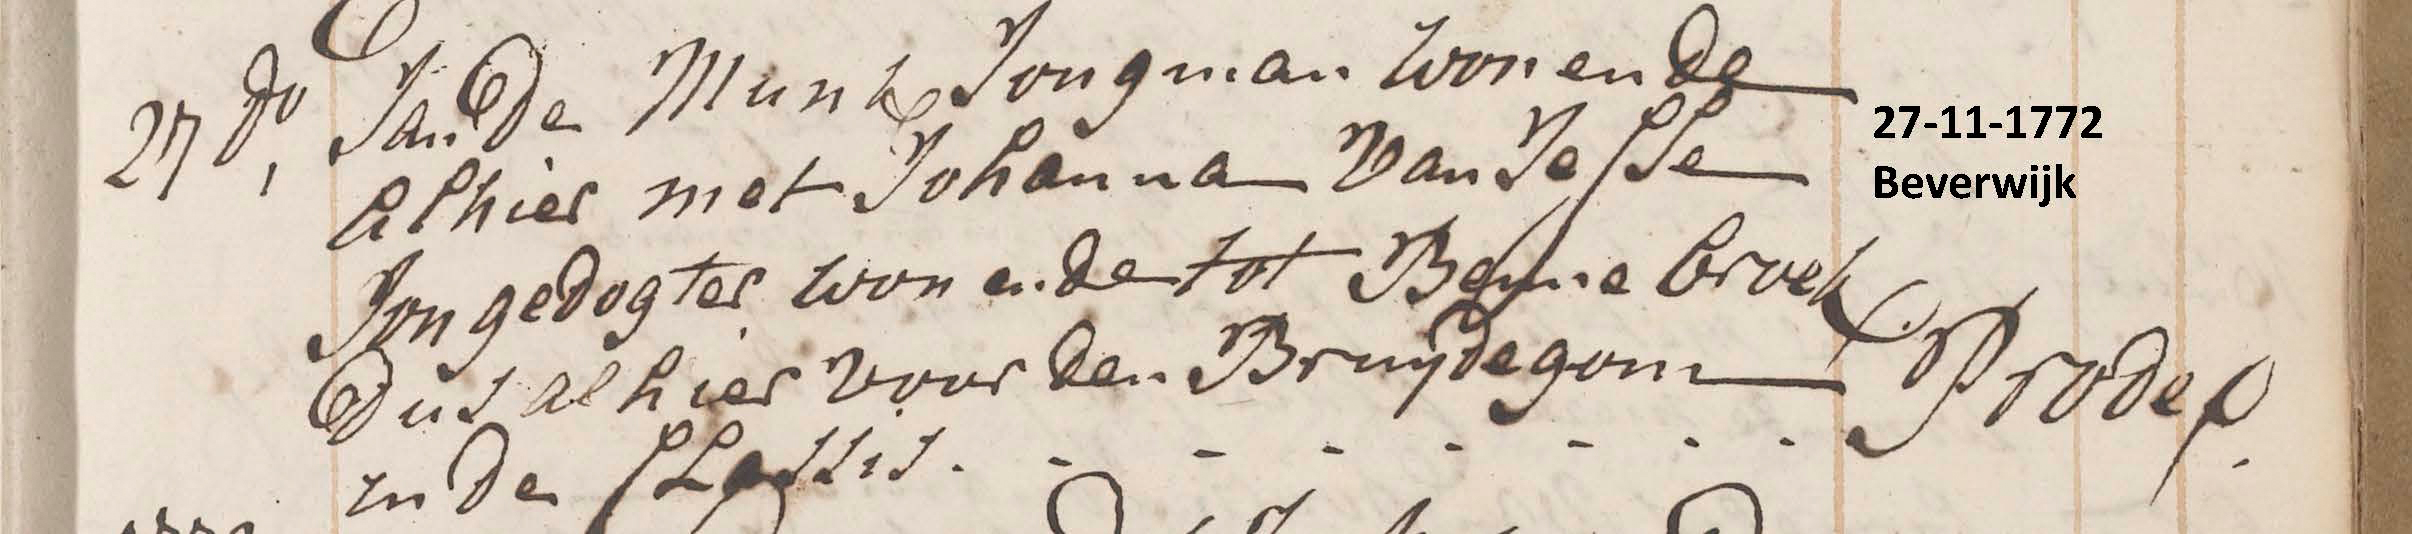 27 do, Jan De Munk Jongman wonende
alhier met Johanna Van Jesse
Jongedogter wonende tot Bennebroek
Dus alhier voor den Bruydegom Prodeo.
in de Classis. - - - - - - -
27-11-1772
Beverwijk